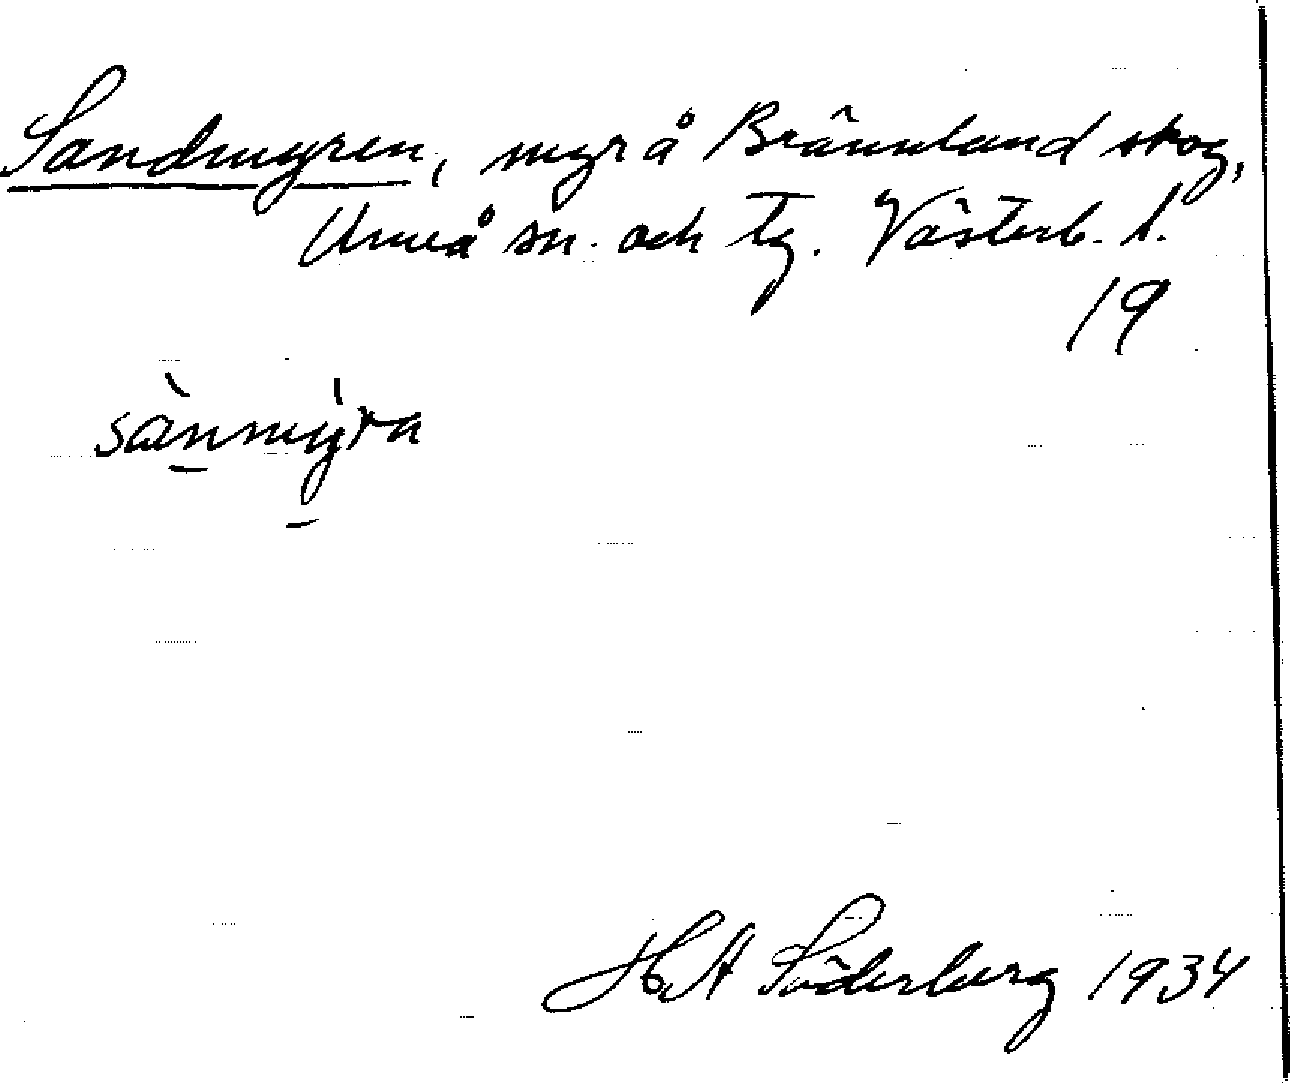 Sandmyren, myr å Brännland skog,
Umeå sn. och tg. Västerb. l.
19
sànmỳra
H A Söderberg 1934